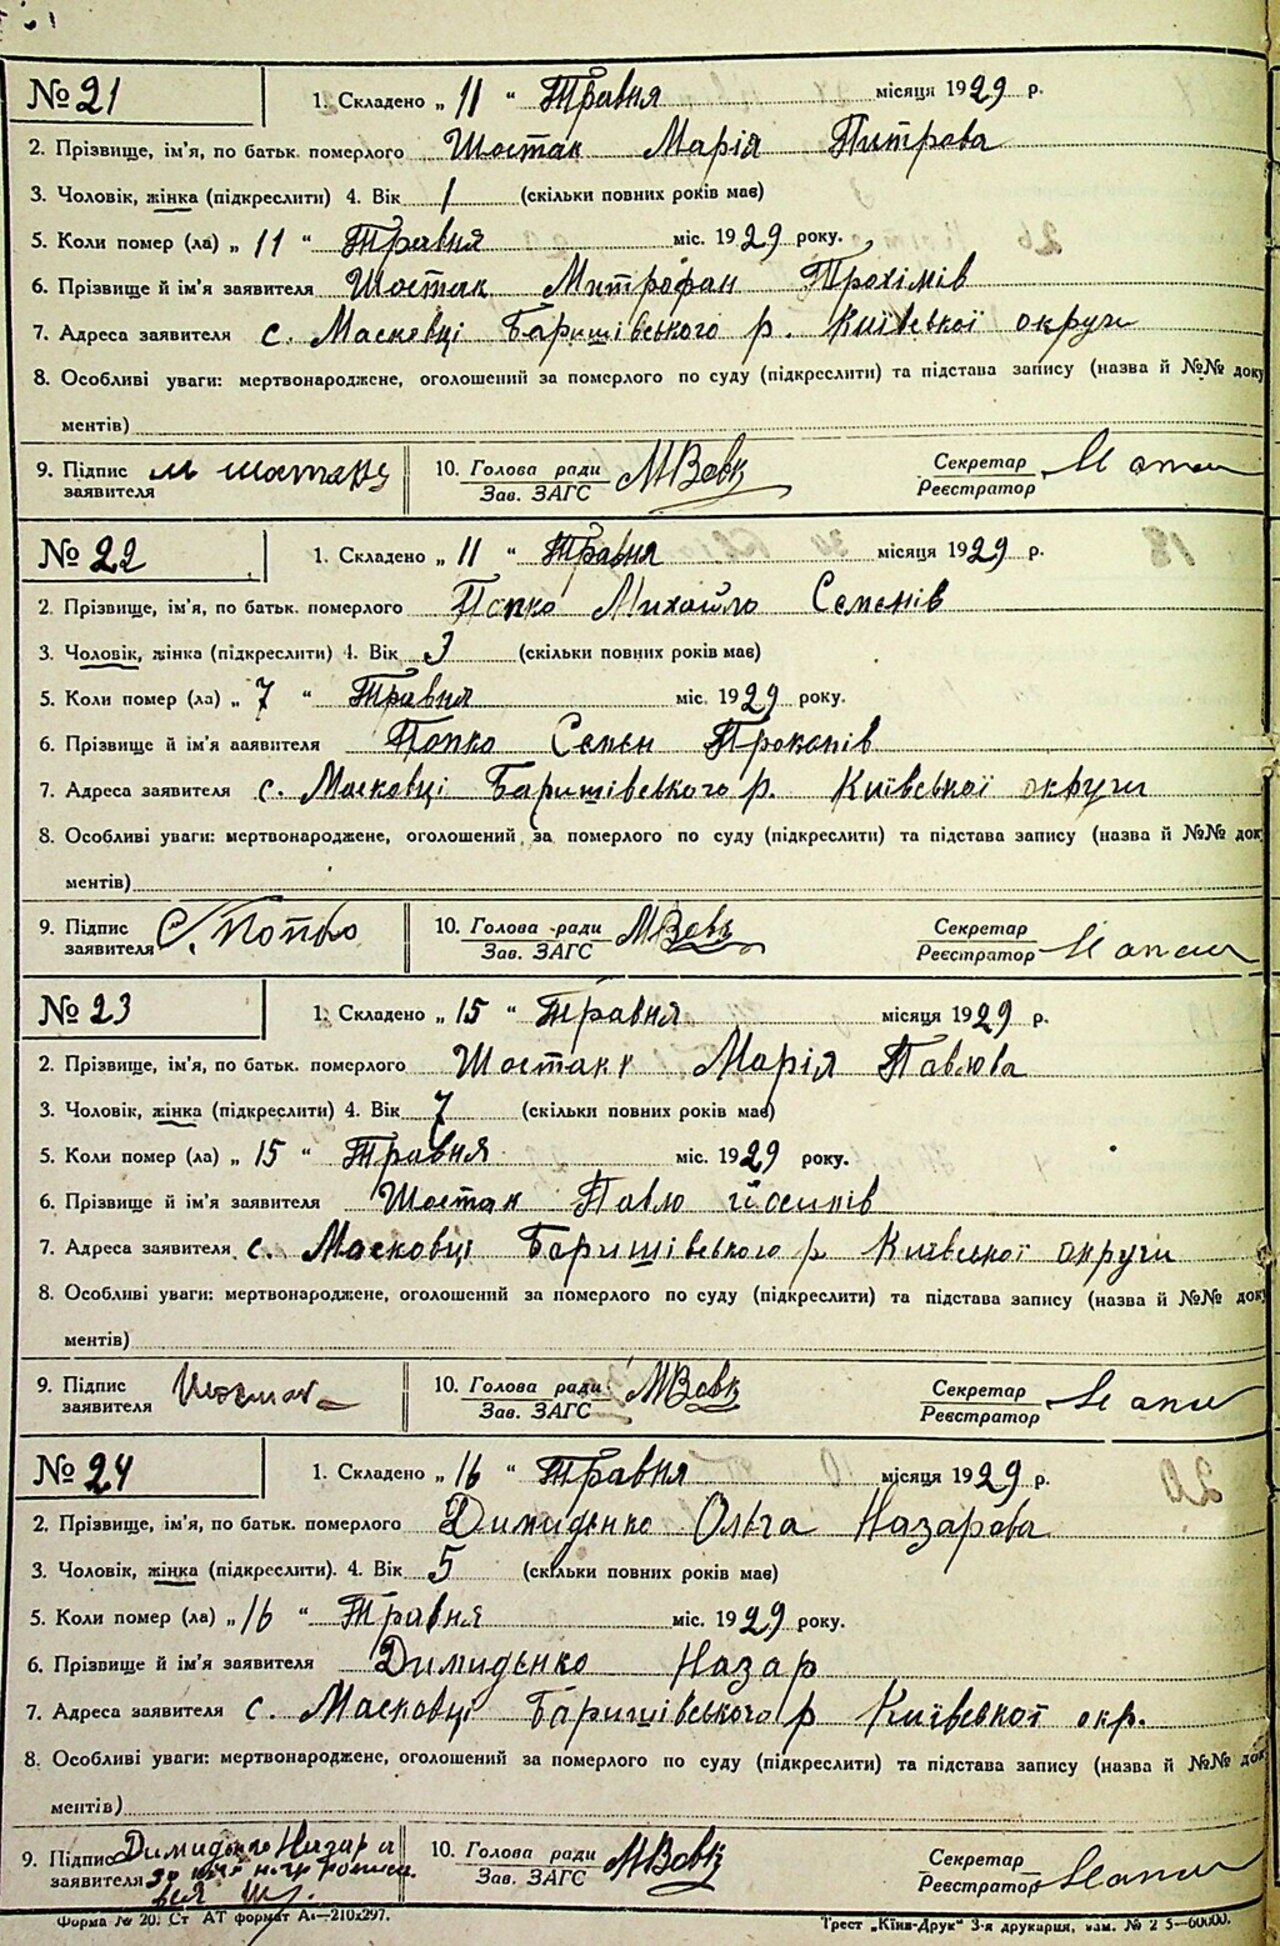 № 21 1. Складено „ 11 “ Травня місяця 1929 р.
2. Прізвище, ім'я, по батьк. померлого Шостак Марія Питрова
3. Чоловік, жінка (підкреслити) 4. Вік 1 (скільки повних років має)
5. Коли помер (ла) „ 11 “ Травня міс. 1929 року.
6. Прізвище й ім'я заявителя Шостак Митрофан Трохімів
7. Адреса заявителя с. Масковці Баришівського р. Київської округи
8. Особливі уваги: мертвонароджене, оголошений за померлого по суду (підкреслити) та підстава запису (назва й №№ доку
ментів)
9. Підпис заявителя М 10. Голова ради Зав. ЗАГС МВовк Секретар Реєстратор
№ 22 1. Складено „ 11 “ Травня місяця 1929 р.
2. Прізвище, ім'я, по батьк. померлого Попко Михайло Семенів
3. Чоловік, жінка (підкреслити) 4. Вік 3 (скільки повних років має)
5. Коли помер (ла) „ 7 “ Травня міс. 1929 року.
6. Прізвище й ім'я заявителя Попко Семен Проко­пів
7. Адреса заявителя с. Масковці Баришівського р. Київської округи
8. Особливі уваги: мертвонароджене, оголошений за померлого по суду (підкреслити) та підстава запису (назва й №№ док
ментів)
9. Підпис заявителя С. Попко 10. Голова ради Зав. ЗАГС МВовк Секретар Реєстратор
№ 23 1. Складено „ 15 “ Травня місяця 1929 р.
2. Прізвище, ім'я, по батьк. померлого Шостак Марія Павлова
3. Чоловік, жінка (підкреслити) 4. Вік 7 (скільки повних років має)
5. Коли помер (ла) „ 15 “ Травня міс. 1929 року.
6. Прізвище й ім'я заявителя Шостак Павло Йосипів
7. Адреса заявителя с. Масковці Баришівського р Київської округи
8. Особливі уваги: мертвонароджене, оголошений за померлого по суду (підкреслити) та підстава запису (назва й №№ док
ментів)
9. Підпис заявителя Шостак 10. Голова ради Зав. ЗАГС МВовк Секретар Реєстратор
№ 24 1. Складено „ 16 “ Травня місяця 1929 р.
2. Прізвище, ім'я, по батьк. померлого Димиденко Ольга Назарова
3. Чоловік, жінка (підкреслити). 4. Вік 5 (скільки повних років має)
5. Коли помер (ла) „ 16 “ Травня міс. 1929 року.
6. Прізвище й ім'я заявителя Димиденко Назар
7. Адреса заявителя с. Масковці Баришівського р Київської окр.
8. Особливі уваги: мертвонароджене, оголошений за померлого по суду (підкреслити) та підстава запису (назва й №№ док
ментів)
9. Підпис заявителя Димиденко Назара 10. Голова ради Зав. ЗАГС МВовк Секретар Реєстратор
Форма № 20. Ст АТ формат А₄—210х297. Трест „Київ-Друк“ 3-я друкарня, зам. № 2 5—60000.